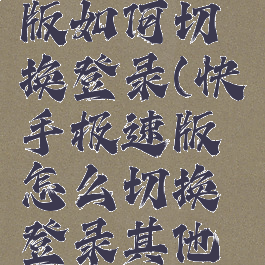 版如何切
换登录(快
手极速版
怎么切换
登录其他